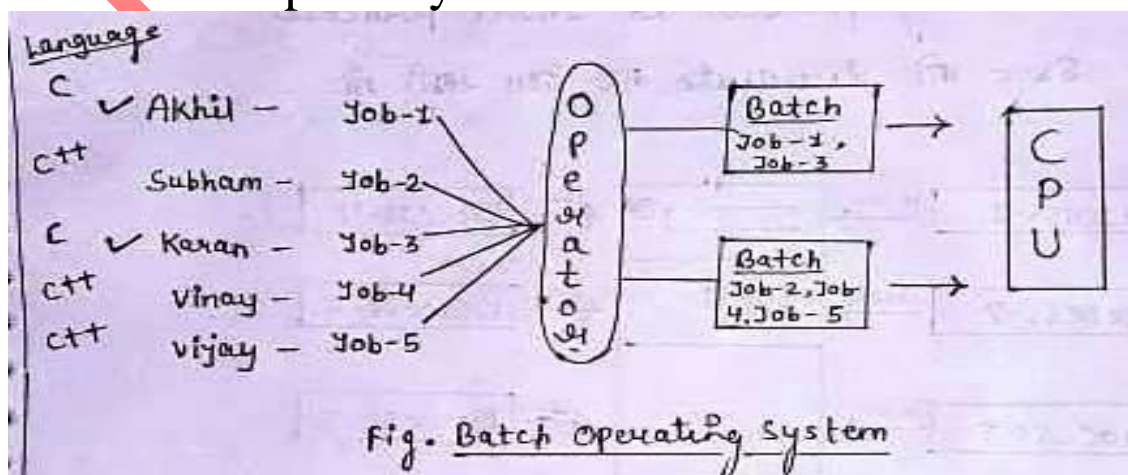 Language
C ✓ Akhil - Job-1
C++ Subham - Job-2
C ✓ Karan - Job-3
C++ Vinay - Job-4
C++ vijay - Job-5
Operator
Batch
Job-1,
Job-3
Batch
Job-2, Job
4, Job-5
CPU
Fig. Batch Operating System